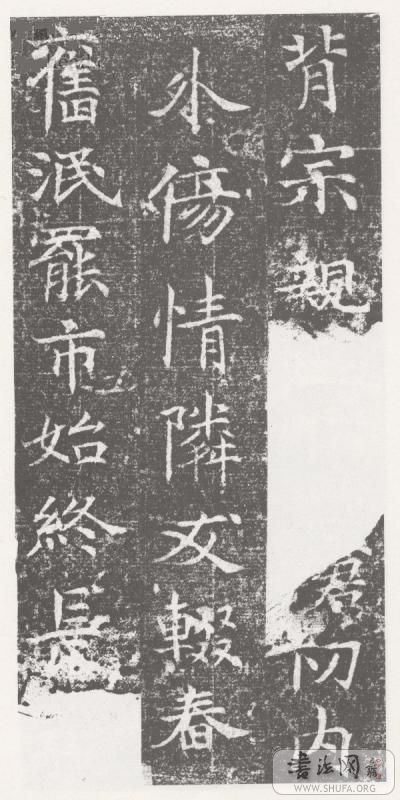 背宗親君切内
外傷情隣女輟春
舊泯罷市始終長
書法网
WWW.SHUFA.ORG